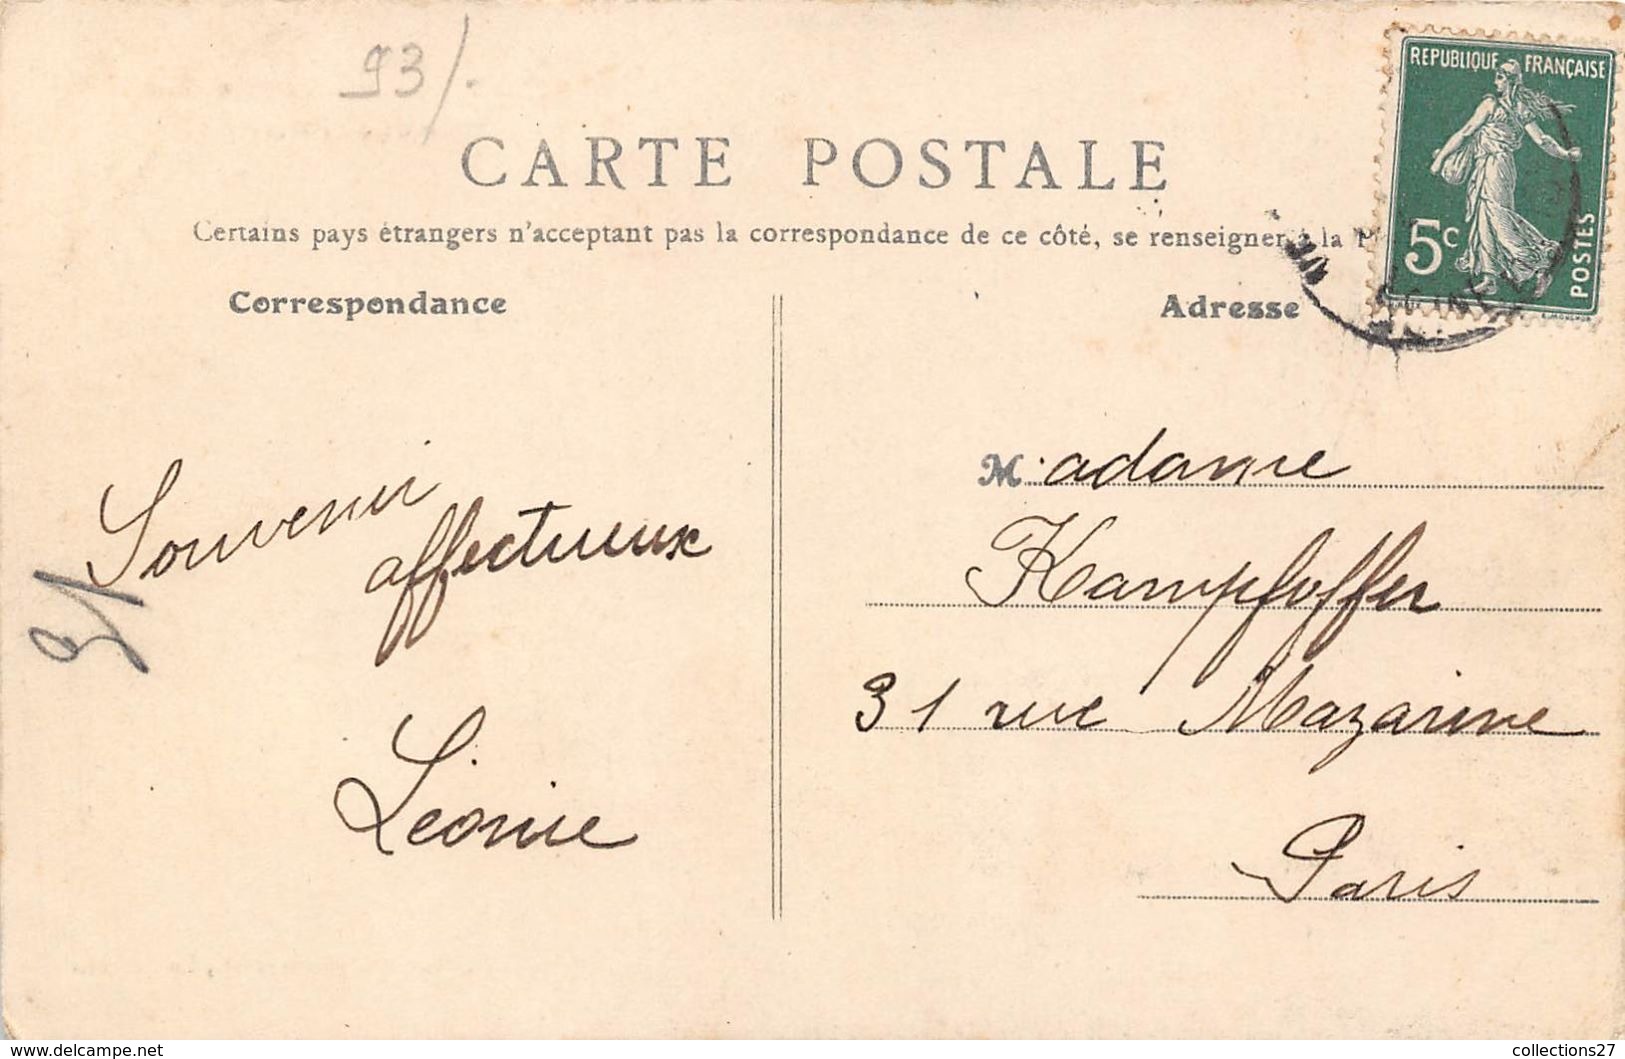 93/.
CARTE POSTALE
Certains pays étrangers n'acceptant pas la correspondance de ce côté, se renseigner à la P
Correspondance
Adresse
REPUBLIQUE FRANÇAISE
5c
POSTES
Souvenir
affectueux
Léonie
Madame
Kampfoffer
31 rue Mazarine
Paris
collections27